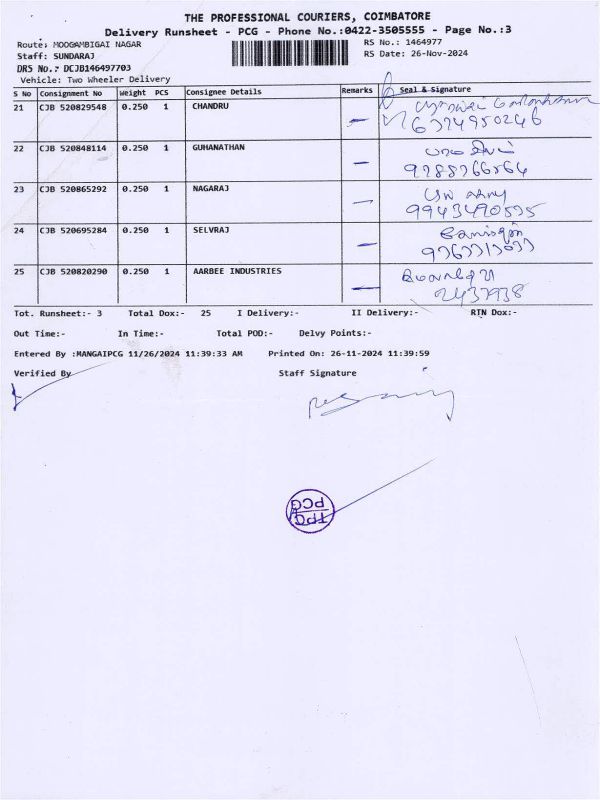 THE PROFESSIONAL COURIERS, COIMBATORE
Delivery Runsheet - PCG - Phone No.:0422-3505555 - Page No.:3
Route: MOOGAMBIGAI NAGAR
RS No.: 1464977
Staff: SUNDARAJ
RS Date: 26-Nov-2024
DRS No.: DCJB146497703
Vehicle: Two Wheeler Delivery
S No Consignment No Weight PCS Consignee Details Remarks Seal & Signature
21 CJB 520829548 0.250 1 CHANDRU
6374950246
22 CJB 520848114 0.250 1 GUHANATHAN
9788766564
23 CJB 520865292 0.250 1 NAGARAJ
24 CJB 520695284 0.250 1 SELVRAJ
25 CJB 520820290 0.250 1 AARBEE INDUSTRIES
2437938
Tot. Runsheet:- 3 Total Dox:- 25 I Delivery:- II Delivery:- RTN Dox:-
Out Time:- In Time:- Total POD:- Delvy Points:-
Entered By :MANGAIPCG 11/26/2024 11:39:33 AM Printed On: 26-11-2024 11:39:59
Verified By Staff Signature
TPC
PCG